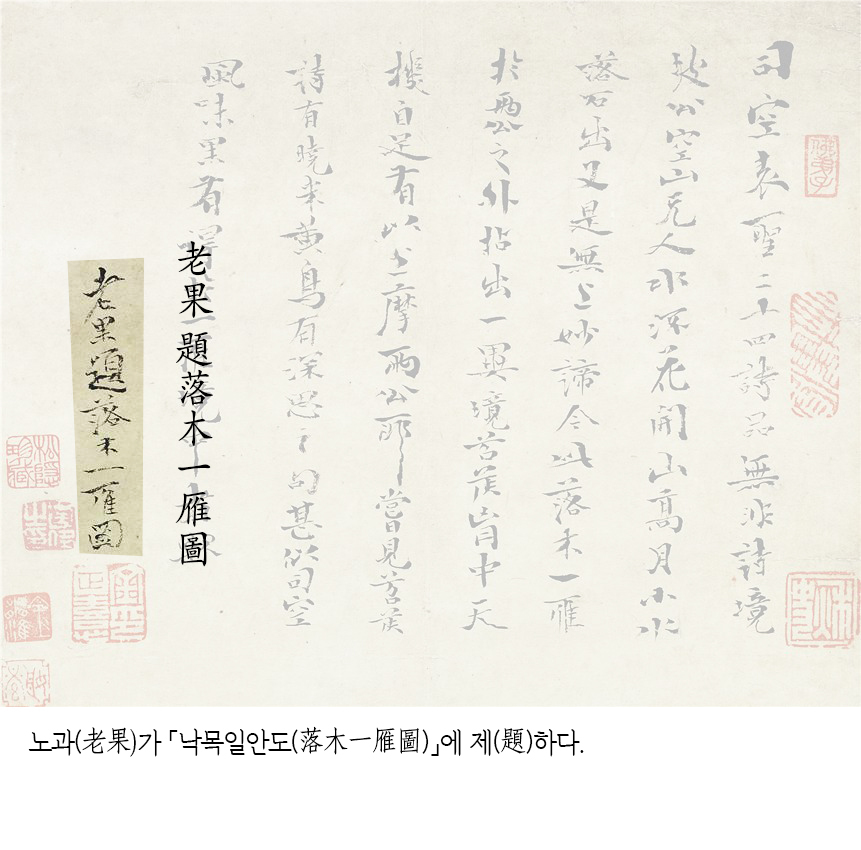 司空表聖二十四詩品無非詩境
坡公空山无人水流花開山高月小水
落石出又是無上妙諦今此落木一雁
於兩公之外拈出一異境苕胷中天
機自足有以上摩兩公耶嘗見苕
詩有曉來黃鳥有深思之句甚似司空
風味果有
老果題落木一雁圖
老果題落木一雁圖
노과(老果)가 「낙목일안도(落木一雁圖)」에 제(題)하다.